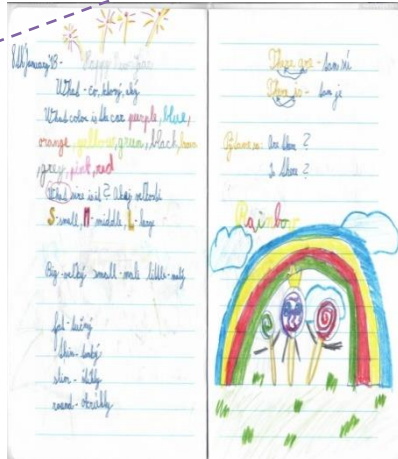 8th January 18 -
Happy New Year
What - čo, ktorý, aký
What color is the car purple, blue,
orange, yellow, green, black, brown
, grey, pink, red
What size is it? Akej veľkosti
S - small, M - middle, L - large
Big - veľký small - malé little - malý
fat - tučný
thin - tenký
slim - štíhly
round - okrúhly
There are - tam sú
There is - tam je
Pýtame sa: Are there ?
Is there ?
Rainbow